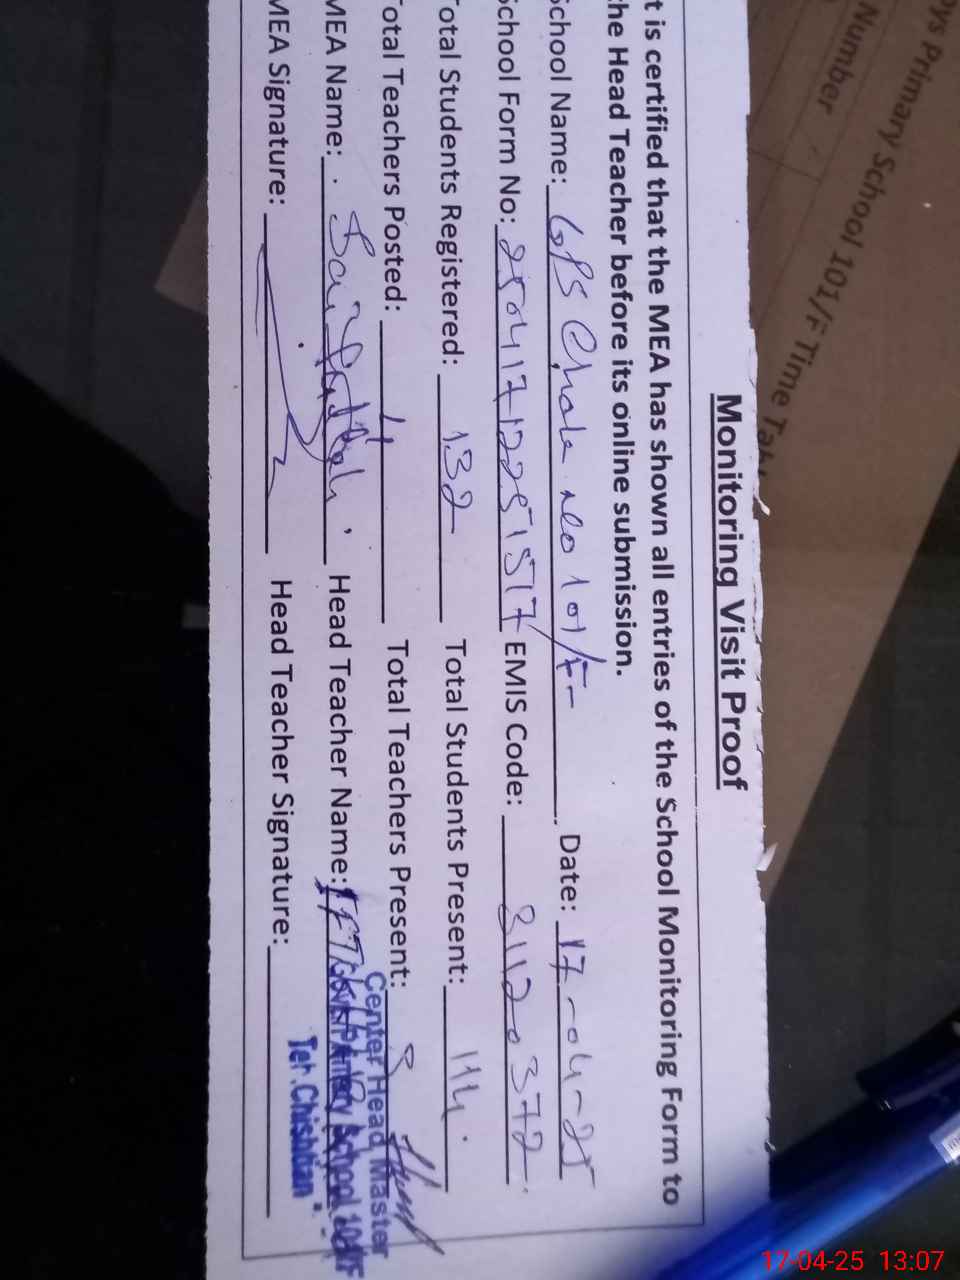 Monitoring Visit Proof
t is certified that the MEA has shown all entries of the School Monitoring Form to
he Head Teacher before its online submission.
chool Name: GPS Chak No 101/F Date: 17-04-25
School Form No: EMIS Code: 31120372
Total Students Registered: 132 Total Students Present: 114
Total Teachers Posted: 4 Total Teachers Present:
MEA Name: Head Teacher Name:
MEA Signature: Head Teacher Signature:
Center Head Master
Govt. Primary School 101/F
Teh. Chishtian
oys Primary School 101/F Time Tabl
Number
17-04-25 13:07